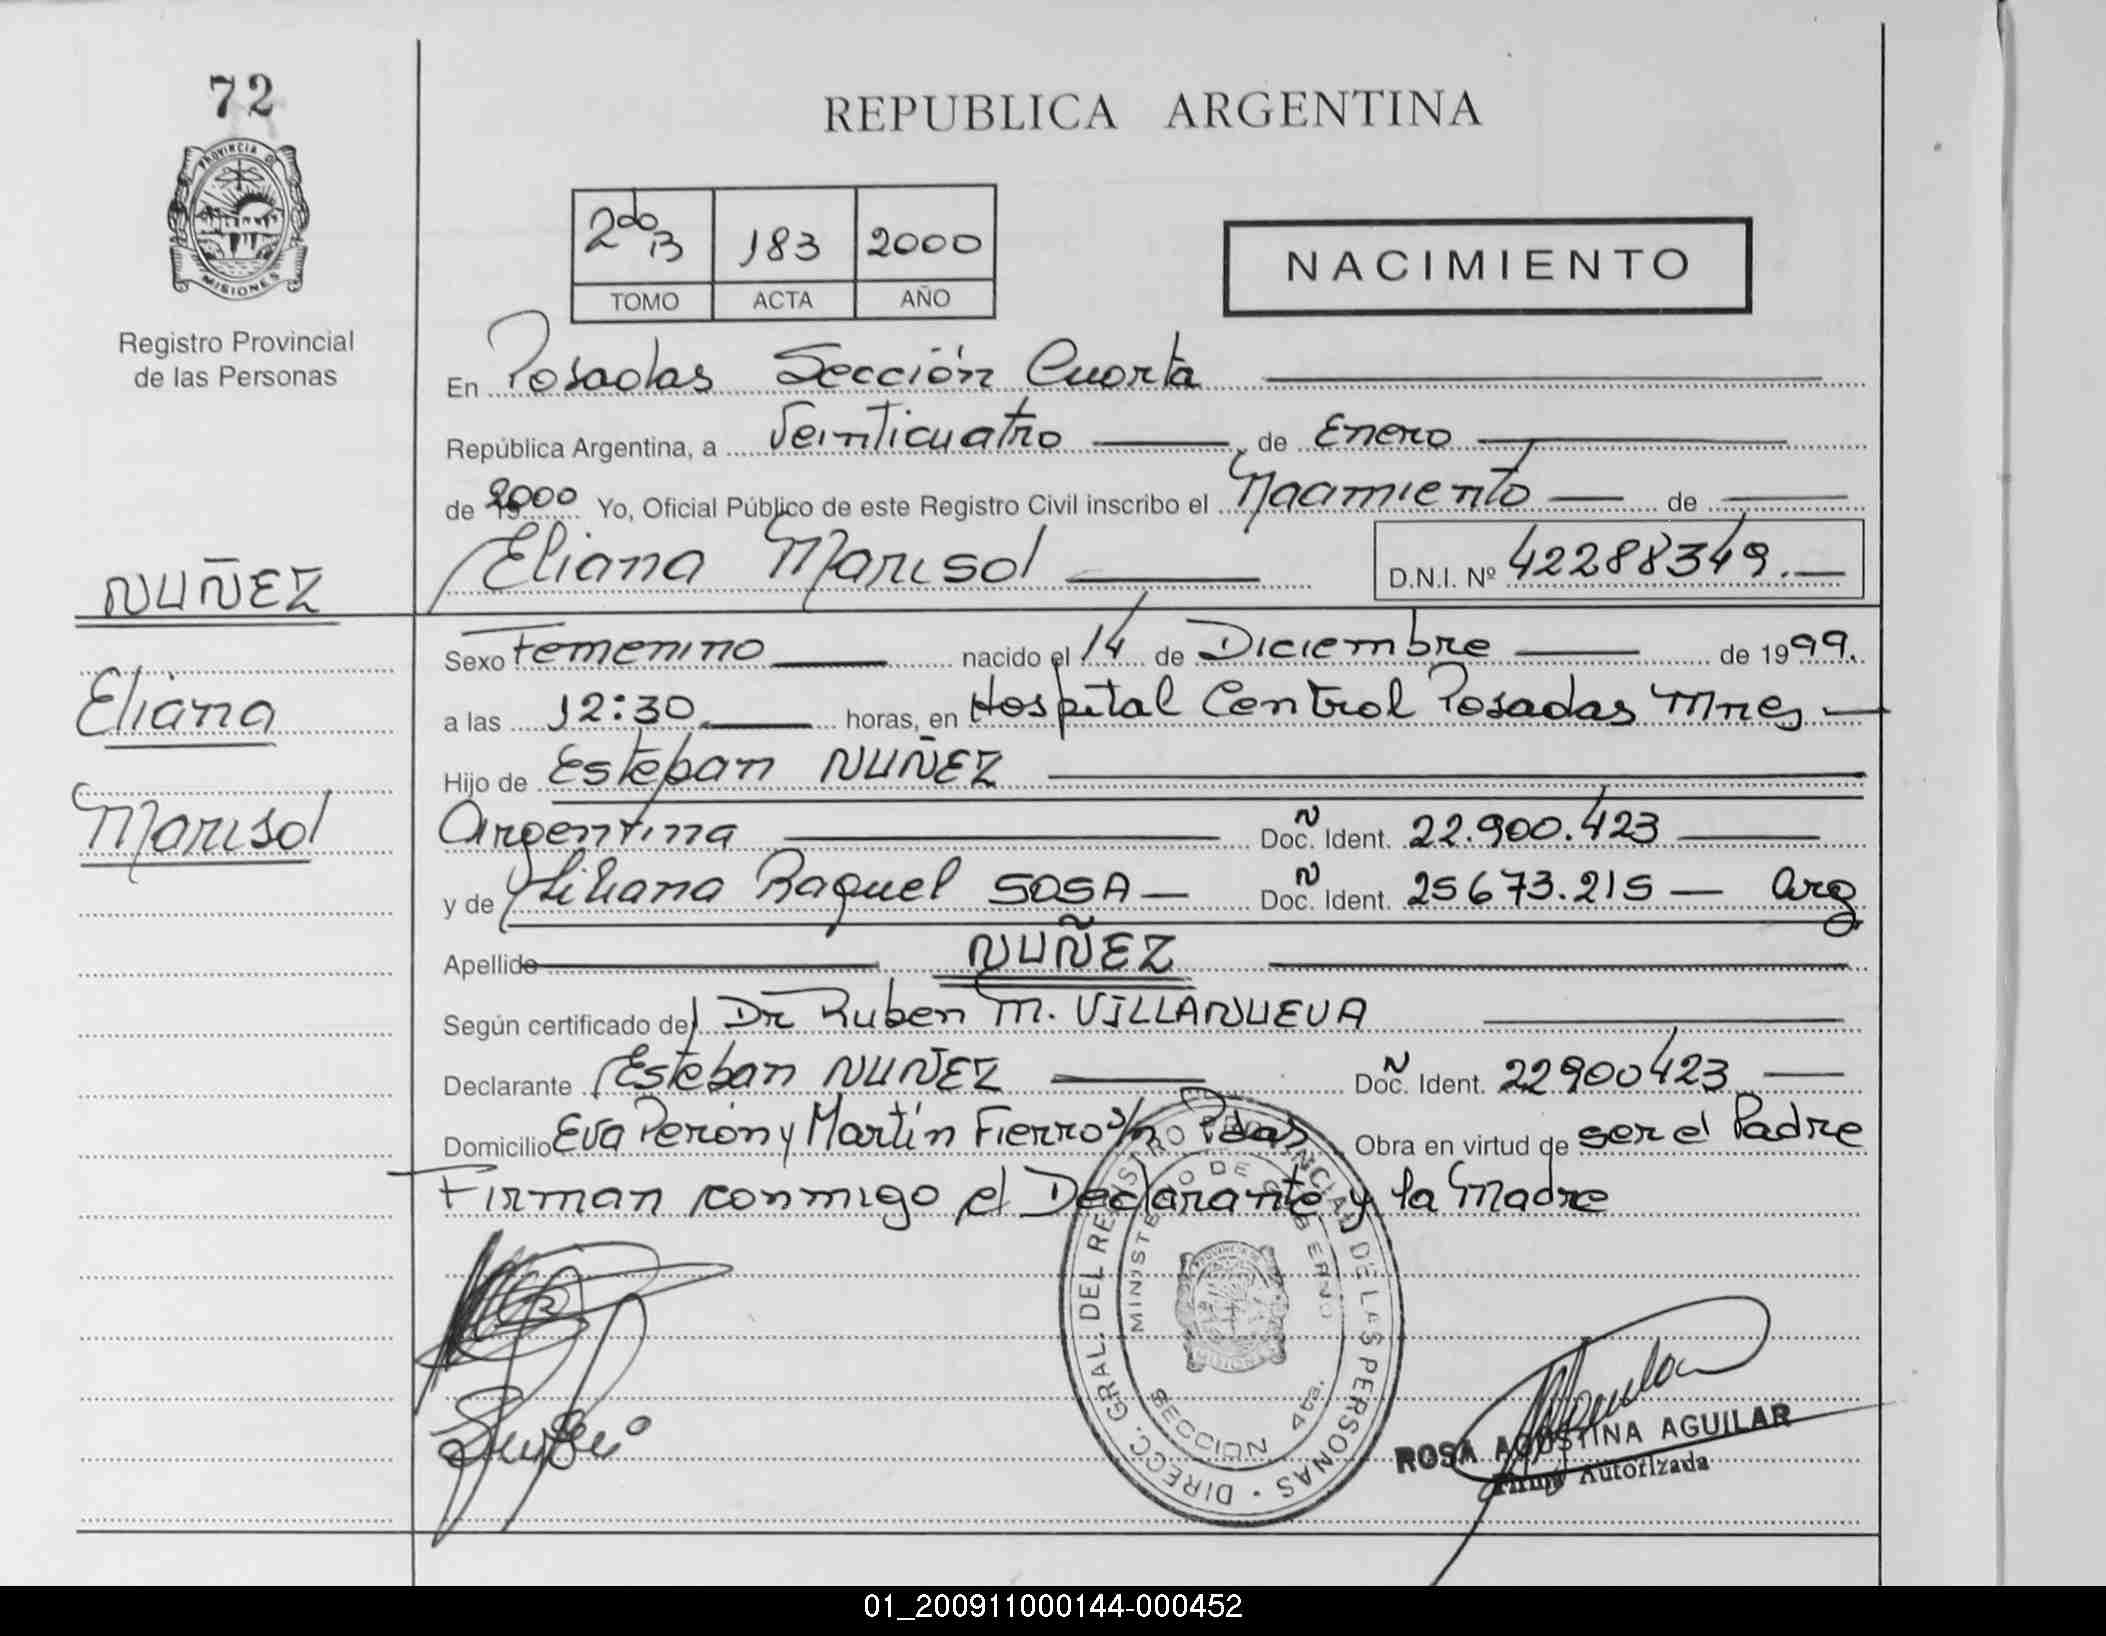 72
PROVINCIA DE MISIONES
Registro Provincial
de las Personas
REPUBLICA ARGENTINA
2do B 183 2000
TOMO ACTA AÑO
NACIMIENTO
En Posadas Sección Cuarta
República Argentina, a Veinticuatro de Enero
de 2000 Yo, Oficial Público de este Registro Civil inscribo el Nacimiento de
Eliana Marisol D.N.I. Nº 42288349.
NUÑEZ
Eliana
Marisol
Sexo Femenino nacido el 14 de Diciembre de 1999.
a las 12:30 horas, en Hospital Central Posadas Mnes
Hijo de Esteban NUÑEZ
Argentina Doc. Ñ Ident. 22.900.423
y de Liliana Raquel SOSA Doc. Ñ Ident. 25673.215 Arg
Apellido NUÑEZ
Según certificado del Dr Ruben M. VILLANUEVA
Declarante Esteban NUÑEZ Doc. Ñ Ident. 22900423
Domicilio Eva Perón y Martín Fierro s/n Pdas Obra en virtud de ser el Padre
Firman conmigo el Declarante y la Madre
DIRECC. GRAL. DEL REGISTRO PROVINCIAL DE LAS PERSONAS
MINISTERIO DE GOBIERNO
SECCION 4ta.
ROSA AGUSTINA AGUILAR
Firma Autorizada
01_200911000144-000452